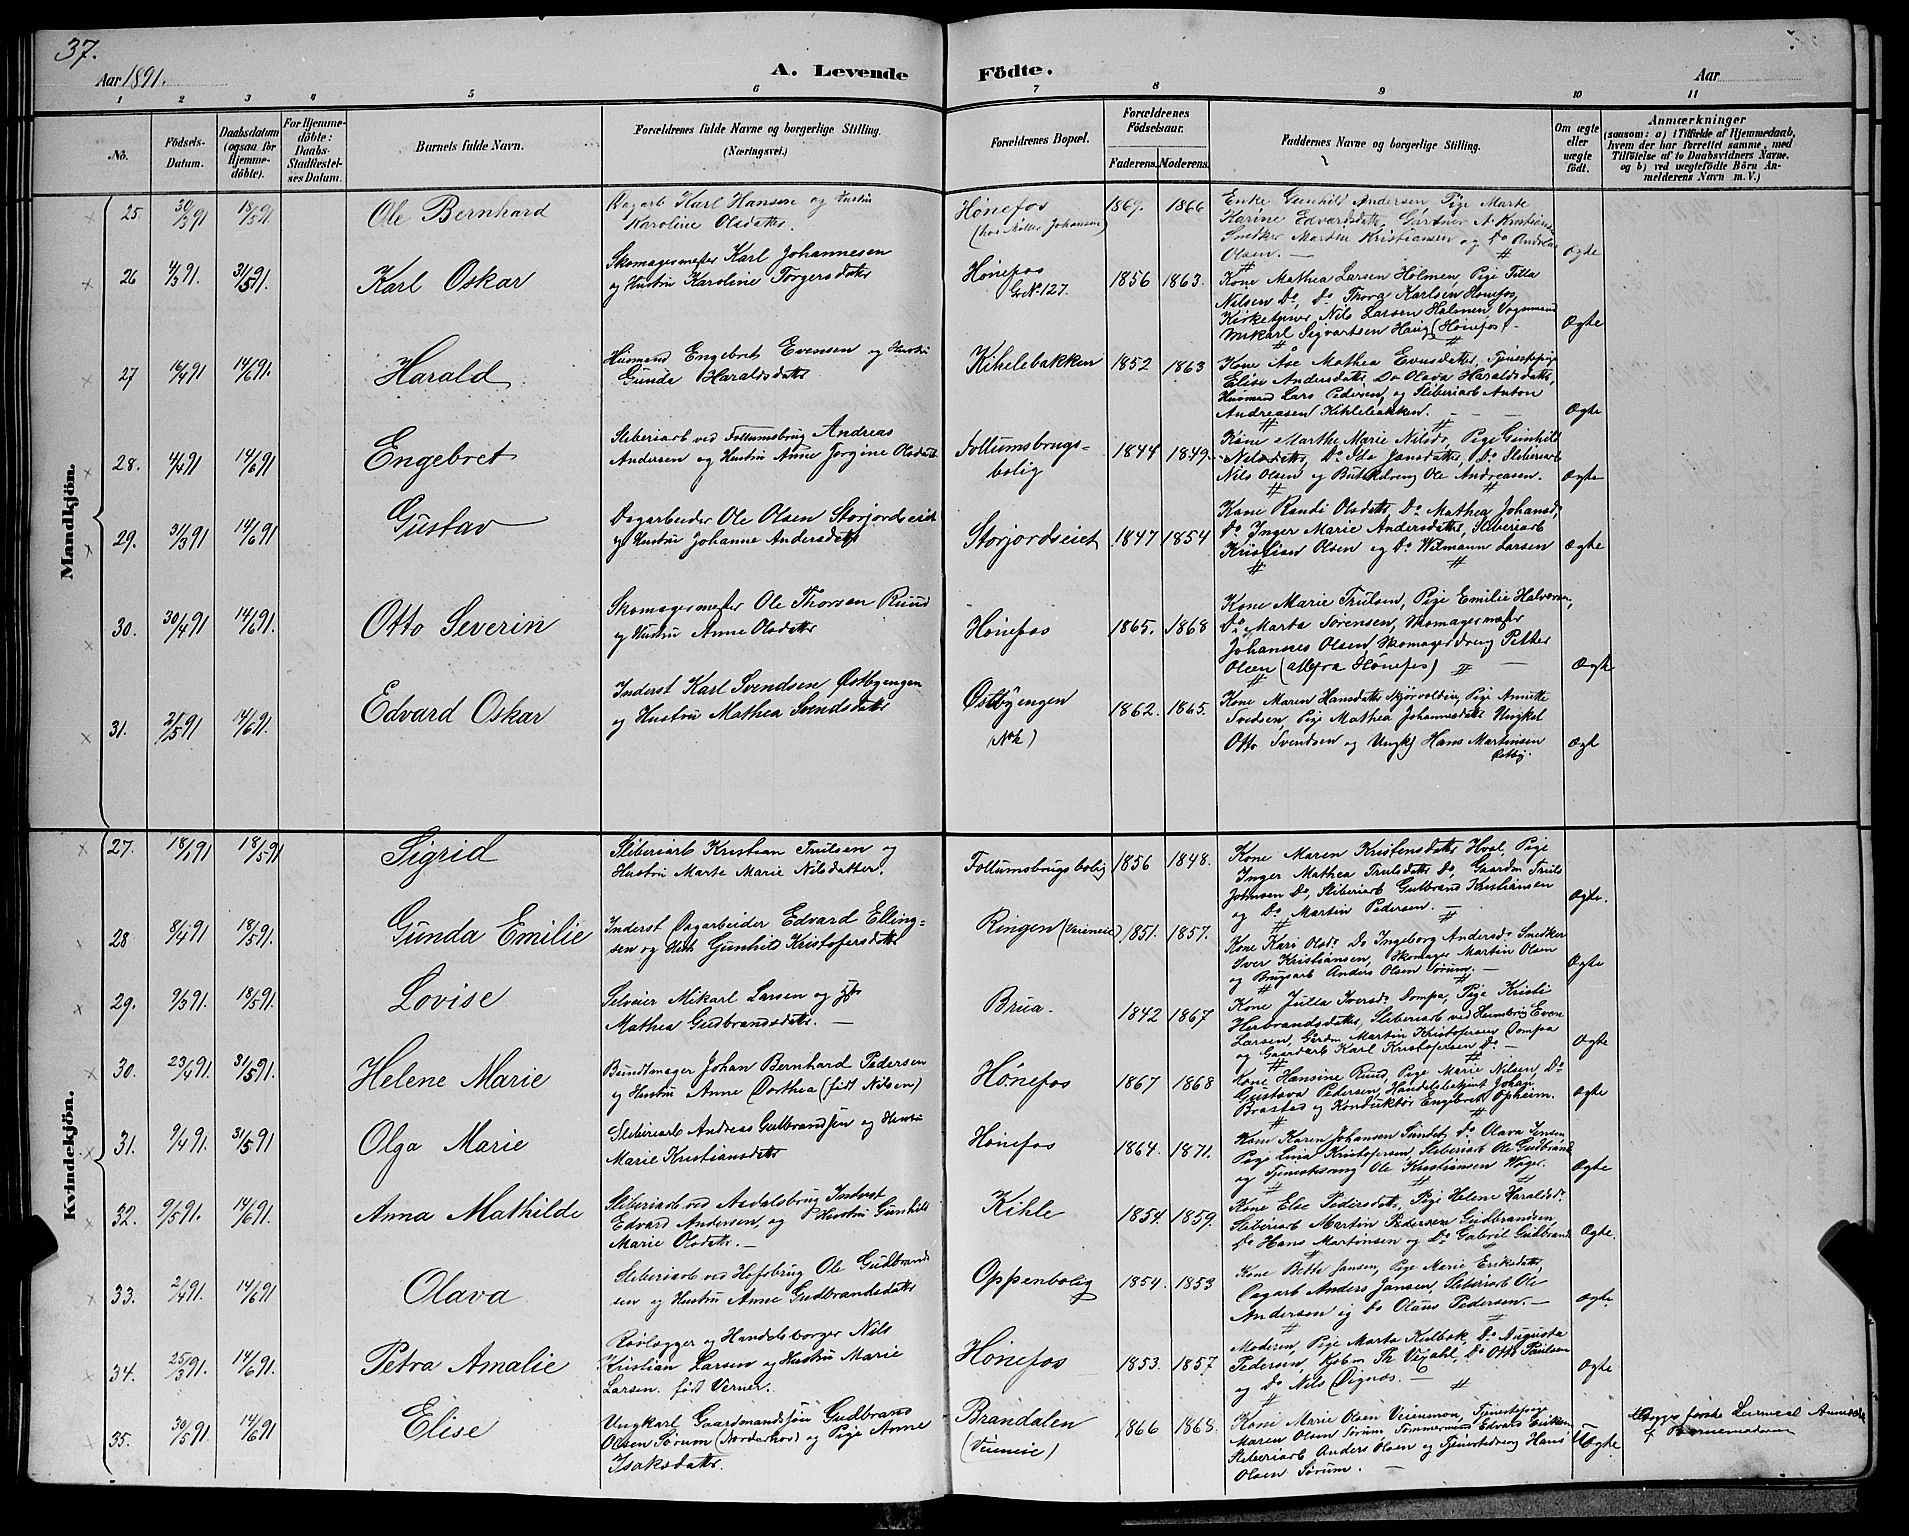 37.
Aar 1891.
A. Levende Fødte.
Aar
1 2 3 4 5 6 7 8 9 10 11
No.
Födsels-Datum.
Daabsdatum (ogsaa for Hjemme-döbte).
For Hjemme-döbte: Daabs-Stadfæstel-ses Datum.
Barnets fulde Navn.
Forældrenes fulde Navne og borgerlige Stilling. (Næringsvei.)
Forældrenes Bopæl.
Forældrenes Födselsaar.
Faderens. Moderens.
Faddernes Navne og borgerlige Stilling.
Om ægte eller uægte födt.
Anmærkninger
(saasom: a) i Tilfælde af Hjemmedaab, hvem der har forrettet samme, med Tilföielse af to Daabsvidners Navne, og b) ved uægtefödte Börn An-melderens Navn m. V.)
Mandkjön.
25 30/3 91 18/5 91. Ole Bernhard
Dagarb Karl Hansen og Hustru
Karoline Olsdatter.
Hønefos
(hos Møller Johansen)
1869. 1866
Enke Gunhild Andersen, Pige Marte
Karine Edvardsdatt, Gartner A. Kristians
Snedker Martin Kristiansen og Do Andreas
Olsen. Ægte
26 4/3 91. 31/5 91. Karl Oskar
Skomagermester Karl Johannesen
og Hustru Karoline Torgersdatter
Hønefos
Gr No 127.
1856 1863.
Kone Mathea Larsen Holmen, Pige Tilla
Nilsen Do, Do Thora Karlsen Hønefos,
Kirketjener Nils Larsen Holmen, Vognmand
Mikael Sigvartsen Haug (Hønefos). Ægte
27 16/4 91 14/6 91. Harald
Husmand Engebret Evensen og Hustru
Gunda Haraldsdatter
Kihlebakken 1852 1863
Kone Ase Mathea Evensdatter, Tjenestepige
Elise Andersdatter, Do Olava Haraldsdatter,
Husmand Lars Pedersen, og Sliberiarb Anton
Andreasen Kihlebakken. Ægte
28. 4/4 91 14/6 91 Engebret
Sliberiarb ved Follumsbrug Andreas
Andersen og Hustru Anne Jorgine Olsdatt
Follumsbrugs-
bolig
1844 1849.
Kone Marthe Marie Nilsdr, Pige Gunhild
Nilsdatter, Do Ida Jansdatter, Do Sliberiarb
Nils Olsen og Butikdreng Ole Andreasen. Ægte
29. 31/3 91 14/6 91 Gustav
Dagarbeider Ole Olsen Storjordseiet
og Hustru Johanne Andersdatter
Storjordseiet 1847 1854
Kone Randi Olsdatter Do Mathea Johansd,
Do Inger Marie Andersdatter, Sliberiarb
Kristian Olsen og Do Wilmann Larsen Ægte
30. 30/4 91 14/6 91. Otto Severin
Skomagermester Ole Thorsen Ruud
og Hustru Anne Olsdatter
Hønefos 1865. 1868
Kone Marie Trulsen, Pige Emilie Halvorsen,
Do Marta Sørensen, Skomagermester
Johannes Olsen, Skomagerdreng Petter
Olsen (alle fra Hønefos) Ægte
31. 2/5 91 14/6 91. Edvard Oskar
Inderst Karl Svendsen Østbyengen
og Hustru Mathea Svendsdatter
Østbyengen
(Nok)
1862. 1865.
Kone Maren Hansdatter Skjørvoldeng Pige Annette
Svedsen, Pige Mathea Johannesdatter Ungkal
Otto Svendsen og Ungk) Hans Martinsen
Østby. Ægte
Kvindekjön.
27. 18/1 91 18/5 91 Sigrid
Sliberiarb Kristian Trulsen og
Hustru Marte Marie Nilsdatter.
Follumsbrugsbolig 1856 1848.
Kone Maren Kristensdatter Hval, Pige
Inger Mathea Trulsdatter Do, Gaardm Truls
Johnsen Do, Sliberiarb Gulbrand Kristiansen
og Do Martin Pedersen. Ægte.
28 8/4 91 18/5 91. Gunda Emilie
Inderst Dagarbeider Edvard Elling-
sen og Hust Gunhild Kristofersdatter
Ringen (Veimeie) 1851. 1857.
Kone Kari Olsdr Do Ingeborg Andersdr Snedker
Iver Kristiansen, Skomager Martin Olsen
og Brugsarb Anders Olsen Sørum. Ægte
29. 9/3 91. 18/5 91. Lovise
Selveier Mikael Larsen og Hustru
Mathea Gudbrandsdatter.
Brua. 1842 1867
Kone Julla Iversdr Dompa, Pige Kristi
Herbrandsdatter, Sliberiarb ved Heimbrug Even
Larsen, Grdm Martin Kristofersen Dompa
og Gaardarb Karl Kristofersen Do. Ægte
30. 23/4 91. 31/5 91. Helene Marie
Bundtmager Johan Bernhard Pedersen
og Hustru Anne Dorthea (født Nilsen)
Hønefos 1867 1868
Kone Hansine Ruud, Pige Marie Nilsen, Do
Gustava Pedersen, Handelsbetjent Johan
Brastad og Konduktør Engebret Opheim. Ægte
31. 9/4 91. 31/5 91 Olga Marie
Sliberiarb Andreas Gulbrandsen og Hustru
Marie Kristiansdatter
Hønefos 1864. 1871.
Kone Karen Johansen Sundet, Do Olava Jensen
Pige Lina Kristofersen, Sliberiarb Ole Gudbrands
og Tjenestedreng Ole Kristiansen Wager. Ægte
32. 9/5 91. 14/6 91. Anna Mathilde
Sliberiarb ved Aadalsbrug Inderst
Edvard Andersen, og Hustru Gunhild
Marie Olsdatter.
Kihle 1854. 1859.
Kone Else Pedersdatter, Pige Helene Haraldsdr
Sliberiarb Martin Pedersen Gudbrandsen,
Do Hans Martinsen og Do Gabriel Gudbrands Ægte.
33. 2/4 91. 14/6 91 Olava
Sliberiarb ved Hofsbrug Ole Gudbrand
sen og Hustru Anne Gudbrandsdatter
Oppenbolig 1854. 1853
Kone Berthe Jansen, Pige Marie Eriksdatter,
Dagarb Anders Jansen, Sliberiarb Ole
Andersen og Do Olaus Pedersen. Ægte
34. 25/3 91. 14/6 91. Petra Amalie
Rørlægger og Handelsborger Nils
Kristian Larsen og Hustru Marie
Larsen. født Verner.
Hønefos 1853. 1857
Moderen, Pige Marta Kulbok, Do Augusta
Pedersen, Kjøbm Th Vegahl, Do Otto Paulsen
og Do Nils Øignæs. Ægte
35. 30/5 91 14/6 91 Elise
Ungkarl Gaardmandssøn Gudbrand
Olsen Sørum (Norderhov) og Pige Anne
Isaksdatter.
Brandalen
(Veimeie)
1866 1868.
Kone Marie Olsen Veienmoen, Tjenestepige
Maren Olsen Sørum, Tømmermand Edvard Eriksen
Sliberiarb Anders Olsen og Tjenestedreng Hans
Olsen Sørum. Uægte
Begges første Leiermaal Anmeldt
af Barnemoderen